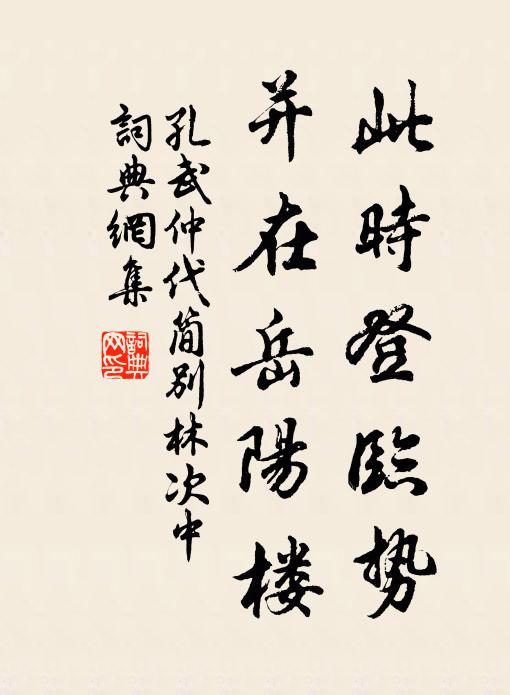 此時登臨势
并在岳陽楼
孔武仲代简别林次中
詞典網集
詞典网印